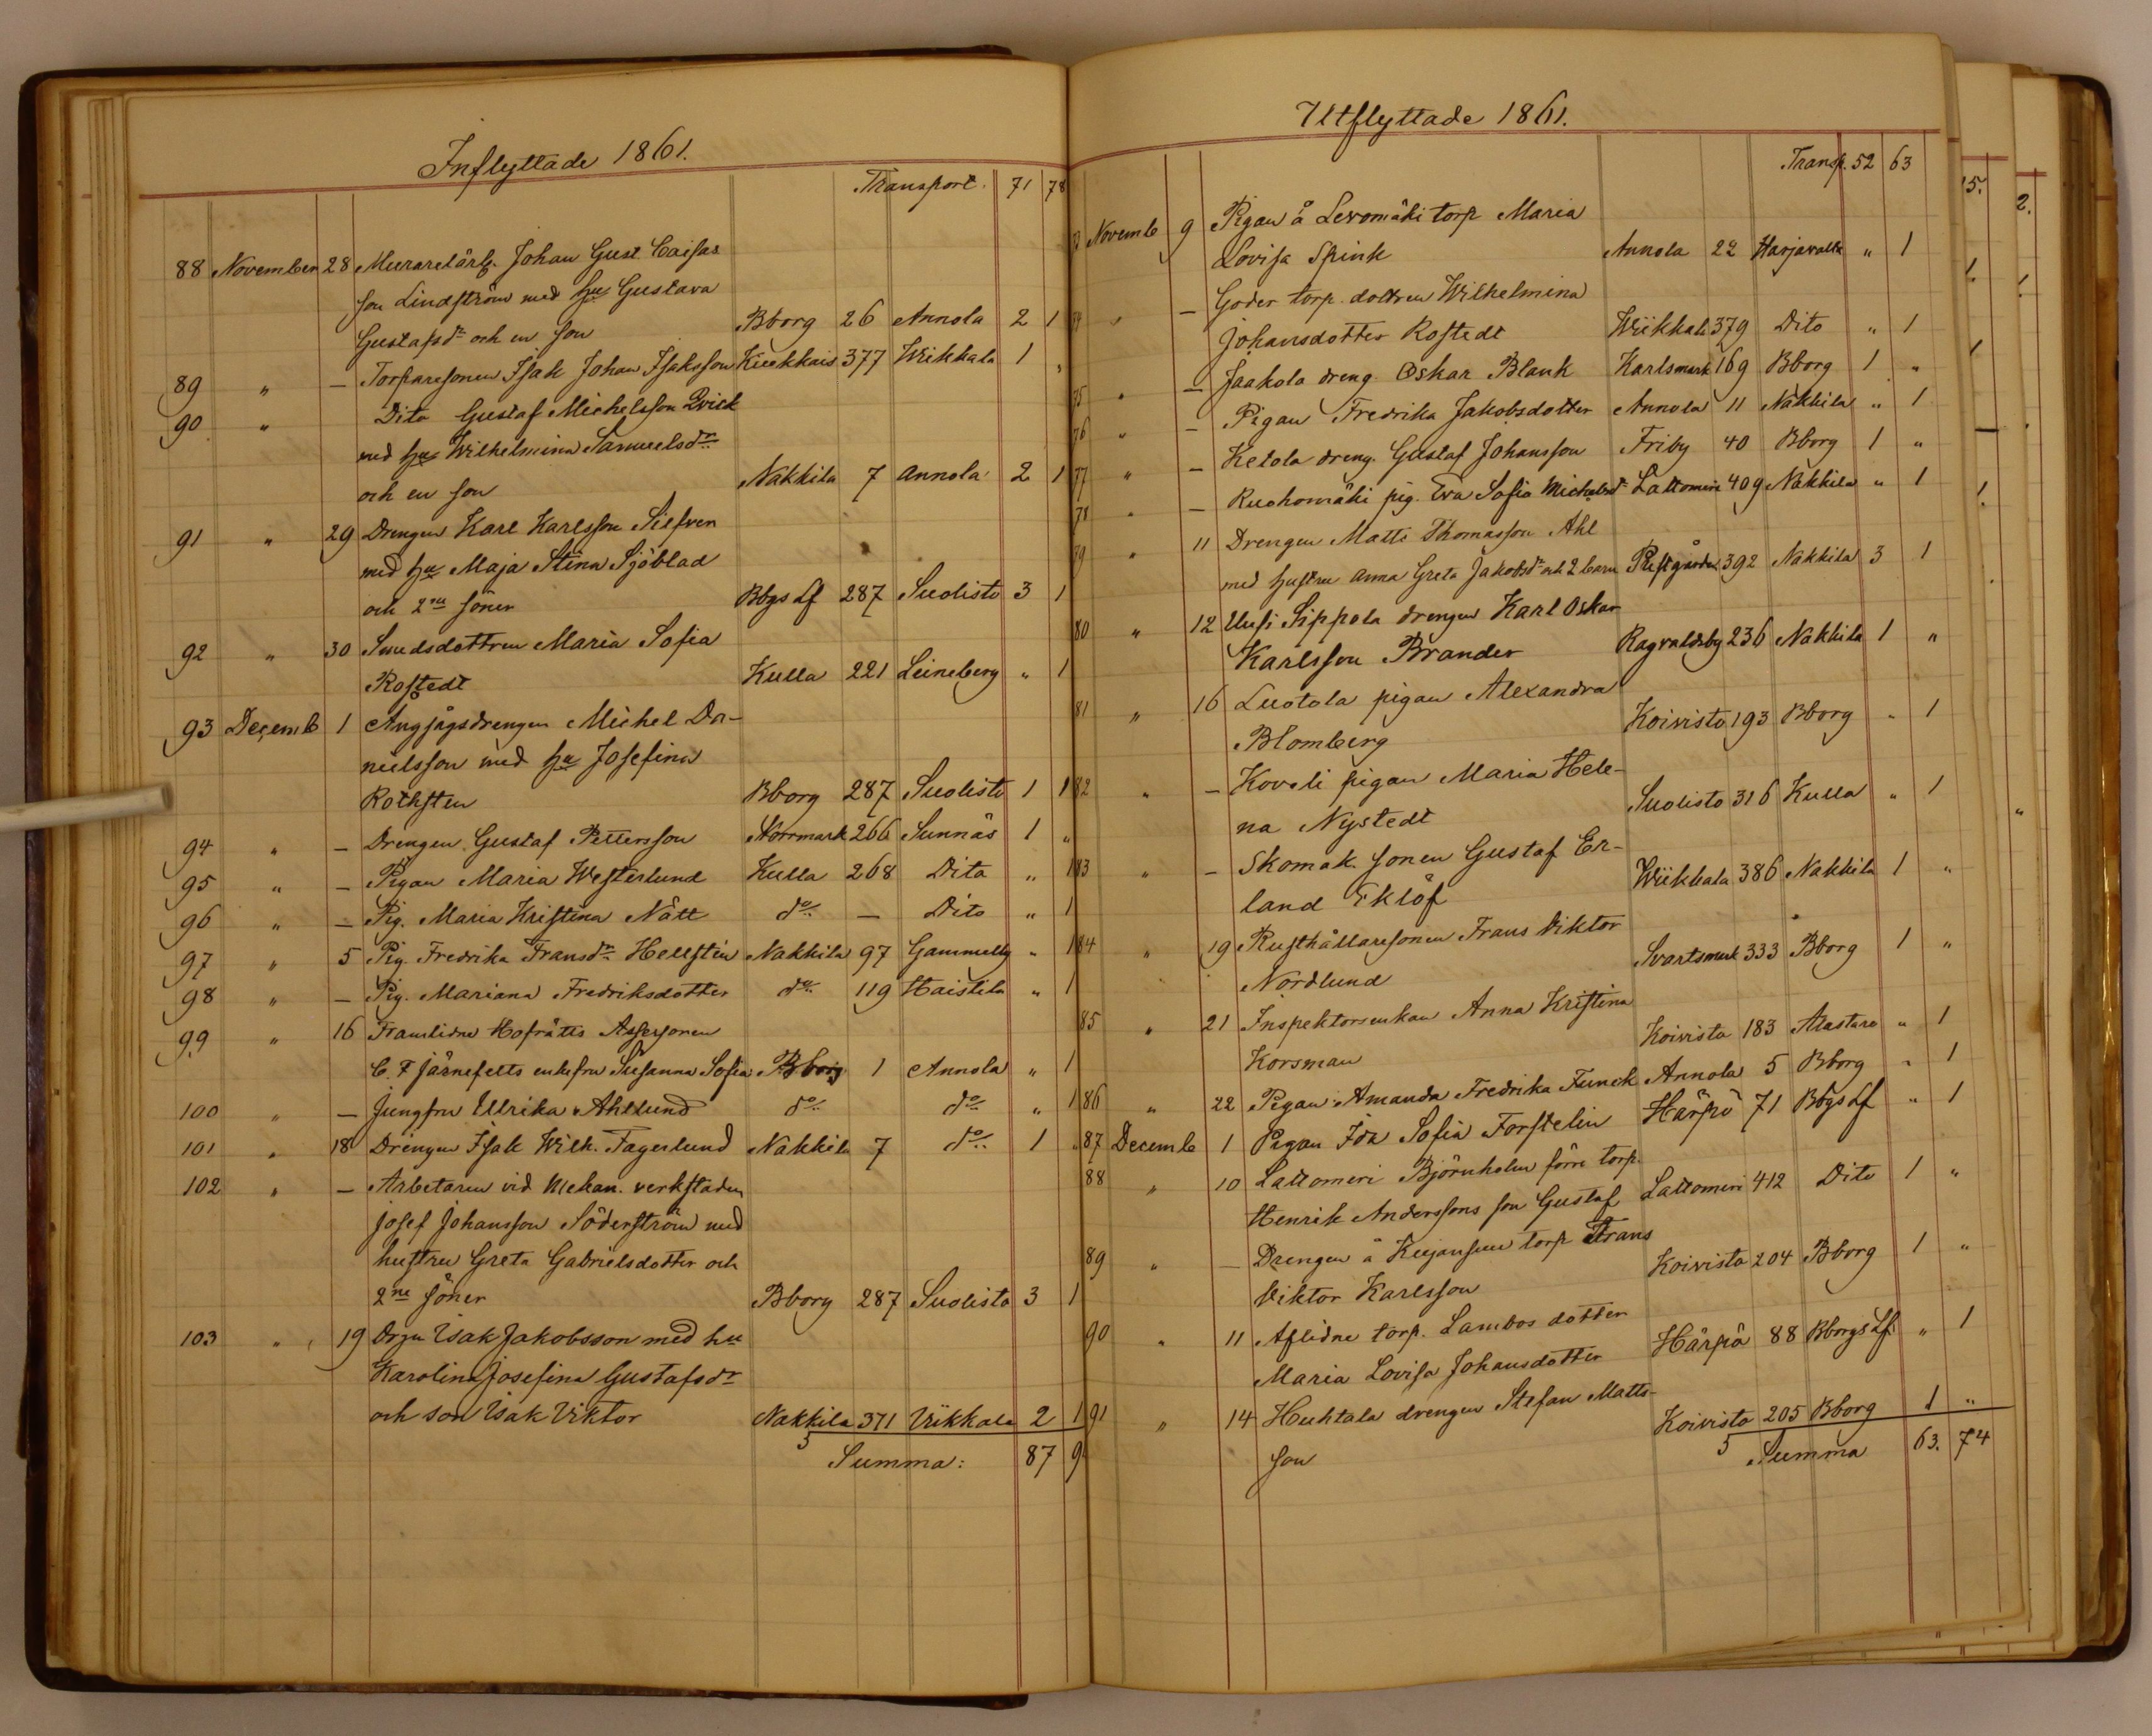 Inflyttade 1861.
Transport. 71 78
88 November 28 Murarelärl. Johan Gust Caisas
son Lindström med hu Gustava
Gustafsdr och en son Bborg 26 Annola 2 1
89 " — Torparesonen Isak Johan Isaksson Kiukkais 377 Wikkala 1 "
90 " Dito Gustaf Michelsson Qvick
med hu Wilhelmina Samuelsdr
och en son Nakkila 7 Annola 2 1
91 " 29 Drengen Karl Karlsson Silfven
med hu Maja Stina Sjöblad
och 2ne söner Bbgs Lf 287 Suolisto 3 1
92 " 30 Smedsdottren Maria Sofia
Rostedt Kulla 221 Leineberg " 1
93 Decemb 1 Ångsågsdrengen Michel Da-
nielsson med hu Josefina
Rothsten Bborg 287 Suolisto 1 1
94 " — Drengen Gustaf Pettersson Norrmark 266 Sunnäs 1 "
95 " — Pigan Maria Westerlund Kulla 268 Dito " 1
96 " — Pig. Maria Kristina Nätt do — Dito " 1
97 " 5 Pig. Fredrika Fransdr Hellstén Nakkila 97 Gammelby " 1
98 " — Pig. Mariana Fredriksdotter do 119 Haistila " 1
99 " 16 Framlidne Hofrätts Assessoren
C. F Järnefelts enkefru Susanna Sofia Bborg 1 Annola " 1
100 " — Jungfru Ullrika Ahllund do do " 1
101 " 18 Drengen Isak Wilh. Fagerlund Nakkila 7 do 1 "
102 " — Arbetaren vid Mekan. verkstaden
Josef Johansson Söderström med
hustru Greta Gabrielsdotter och
2ne söner Bborg 287 Suolisto 3 1
103 " 19 Drgn Isak Jakobsson med hu
Karolina Josefina Gustafsdr
och son Isak Viktor Nakkila 371 Viikkala 2 1
Summa: 87 9
Utflyttade 1861.
Transp. 52 63
3 Novemb 9 Pigan å Levomäki torp Maria
Lovisa Spink Annola 22 Harjavalta " 1
74 " — Goder torp. dottren Wilhelmina
Johansdotter Rostedt Wiikkala 379 Dito " 1
75 " — Jaakola dreng. Oskar Blank Karlsmark 169 Bborg 1 "
76 " — Pigan Fredrika Jakobsdotter Annola 11 Nakkila " 1
77 " — Ketola dreng. Gustaf Johansson Friby 40 Bborg 1 "
78 " — Ruohomäki pig. Eva Sofia Michelsdr Lattomeri 409 Nakkila " 1
79 " 11 Drengen Matts Thomasson Ahl
med hustru Anna Greta Jakobsdr och 2 barn Prestgården 392 Nakkila 3 1
80 " 12 Uusi Sippola drengen Karl Oskar
Karlsson Brander Ragvaldsby 236 Nakkila 1 "
81 " 16 Luotola pigan Alexandra
Blomberg Koivisto 193 Bborg " 1
82 " — Koveli pigan Maria Hele-
na Nystedt Suolisto 316 Kulla " 1
83 " — Skomak. sonen Gustaf Er-
land Eklöf Wiikkala 386 Nakkila 1 "
84 " 19 Rusthållaresonen Frans Viktor
Nordlund Svartsmark 333 Bborg 1 "
85 " 21 Inspektorsenkan Anna Kristina
Korsman Koivisto 183 Alastaro " 1
86 " 22 Pigan Amanda Fredrika Funck Annola 5 Bborg " 1
87 Decemb 1 Pigan Ida Sofia Forstelin Härpö 71 Bbgs Lf " 1
88 " 10 Lattomeri Björnholm förre torp.
Henrik Anderssons son Gustaf Lattomeri 412 Dito 1 "
89 " — Drengen å Kujansuu torp Frans
Viktor Karlsson Koivisto 204 Bborg 1 "
90 " 11 Aflidne torp. Lambos dotter
Maria Lovisa Johansdotter Härpö 88 Bborgs Lf. " 1
91 " 14 Huhtala drengen Stefan Matts-
son Koivisto 205 Bborg 1 "
Summa 63. 74